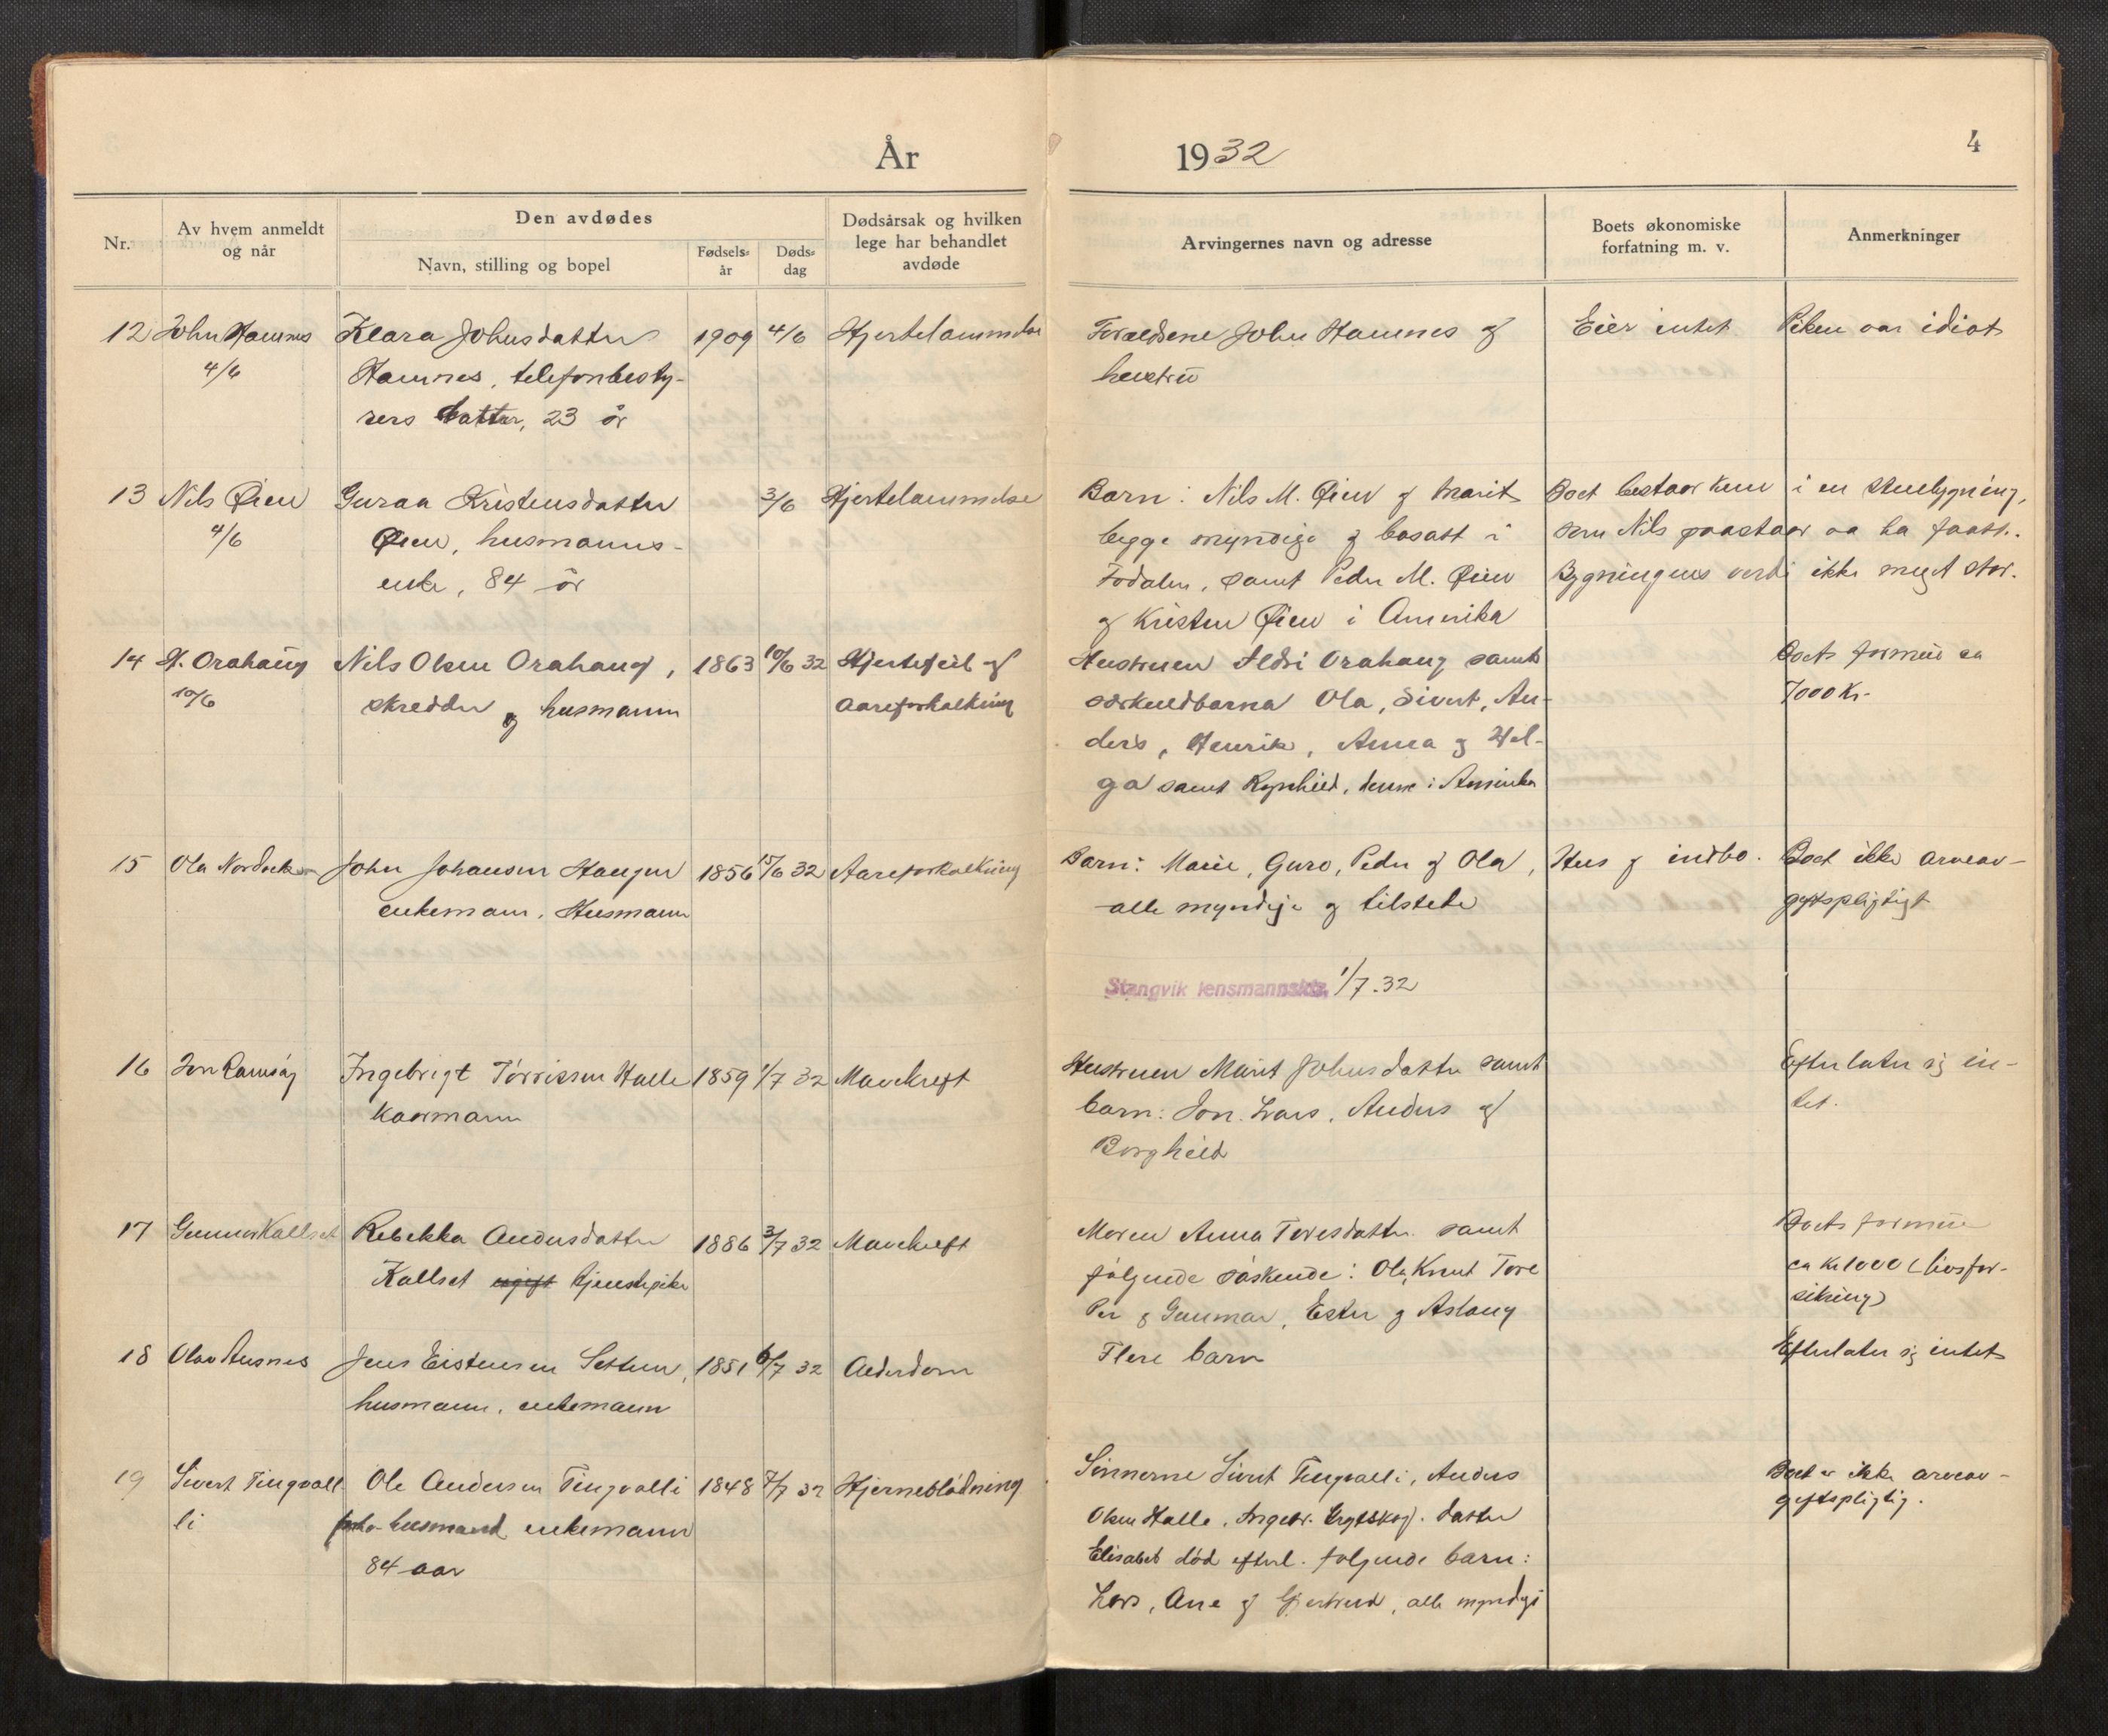 År 1932
4
Nr.
Av hvem anmeldt
og når
Den avdødes
Navn, stilling og bopel
Fødsels-
år
Døds-
dag
Dødsårsak og hvilken
lege har behandlet
avdøde
Arvingernes navn og adresse
Boets økonomiske
forfatning m. v.
Anmerkninger
12 John Hamnes Klara Johnsdatter 1909 4/6 Hjertelammelse Forældrene John Hamnes og Eier intet. Piken var idiot
4/6 Hamnes, telefonbesty- hustru
rers datter, 23 år
13 Nils Øien Guraa Kristensdatter 3/6 Hjertelammelse Barn: Nils M. Øien og Marit Boet bestaar kun i en stuebygning,
4/6 Øien, husmanns- begge myndige og bosatt i som Nils paastaar aa ha faatt.
enke, 84 år Todalen, samt Peder M. Øien Bygningens verdi ikke meget stor.
og Kristen Øien i Amerika
14 H. Orahaug Nils Olsen Orahaug, 1863 10/6 32 Hjertefeil og Hustruen Ildri Orahaug samt Boets formue ca
10/6 skredder og husmann Aareforkalkning særkuldbarna Ola, Sivert, An- 7000 kr.
ders, Henrik, Anna og Hel-
ga samt Ragnhild, denne i Amerika
15 Ola Nordvik John Johansen Haugen 1856 15/6 32 Aareforkalkning Barn: Marie, Guro, Peder og Ola, Hus og indbo. Boet ikke arveav-
enkemann, Husmann alle myndige og tilstede giftspligtigt
Stangvik lensmannsktr. 1/7.32
16 Jon Ramsøy Ingebrigt Tørrissen Halle 1859 1/7 32 Mavekreft Hustruen Marit Johnsdatter samt Efterlater sig in-
kaarmann barn: Jon, Lars, Anders og tet.
Borghild
17 Gunnar Kallset Rebekka Andersdatter 1886 3/7 32 Mavekreft Moren Anna Toresdatter samt Boets formue
Kallset ugift tjenestepike følgende søskende: Ola, Knut Tore ca kr 1000 (livsfor-
Per og Gunnar, Ester og Aslaug sikring)
18 Olav Husnes Jens Eistensen Settem, 1851 6/7 32 Alderdom Flere barn Efterlater sig intet
husmann, enkemann
19 Sivert Tingvall- Ole Andersen Tingvalli 1848 7/7 32 Hjerneblødning Sønnerne Sivert Tingvalli, Anders Boet er ikke arveav-
li husmand enkemann Olsen Halle, Ingebr. datter giftspligtig.
84 aar Elisabet død efterl. følgende barn:
Lars, Ane og Gjertrud, alle myndige